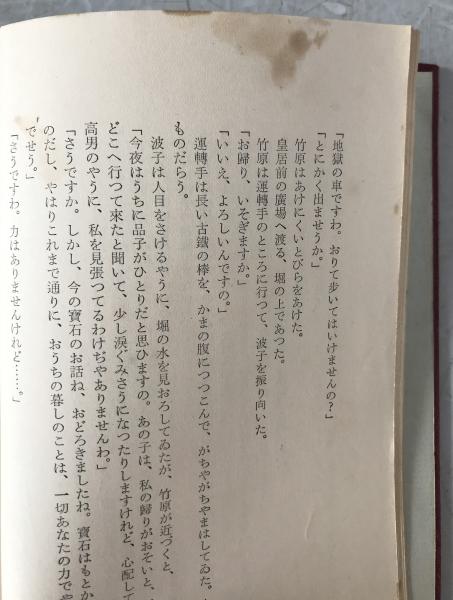 「地獄の車ですわ。おりて歩いてはいけませんの？」
「とにかく出ませうか。」
竹原はあけにくいとびらをあけた。
皇居前の廣場へ渡る、堀の上であつた。
竹原は運轉手のところに行つて、波子を振り向いた。
「お歸り、いそぎますか。」
「いいえ、よろしいんですの。」
運轉手は長い古鐵の棒を、かまの腹につつこんで、がちやがちやまはしてゐた。
ものだらう。
波子は人目をさけるやうに、堀の水を見おろしてゐたが、竹原が近づくと、
「今夜はうちに品子がひとりだと思ひますの。あの子は、私の歸りがおそいと、
どこへ行つて來たと聞いて、少し淚ぐみさうになつたりしますけれど、心配して
高男のやうに、私を見張つてるわけぢやありませんわ。」
「さうですか。しかし、今の寶石のお話ね、おどろきましたね。寶石はもとか
のだし、やはりこれまで通りに、おうちの暮しのことは、一切あなたの力でや
でせう。」
「さうですわ。力はありませんけれど……。」